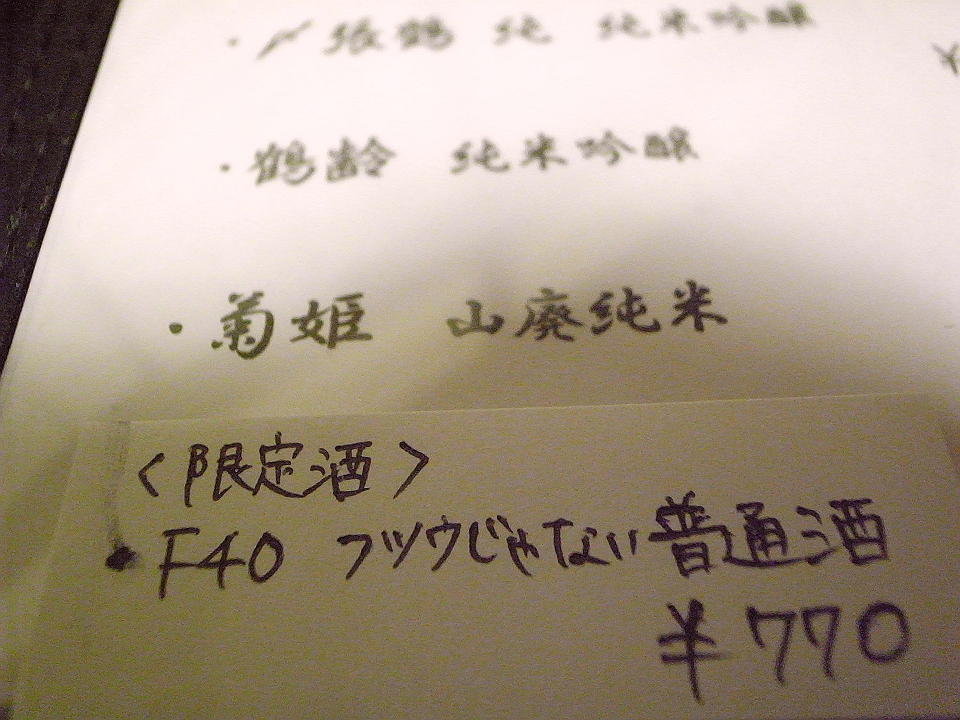 ・〆張鶴 純 純米吟醸 ¥
・鶴齢 純米吟醸
・菊姫 山廃純米
<限定酒>
・F40 フツウじゃない普通酒
¥770